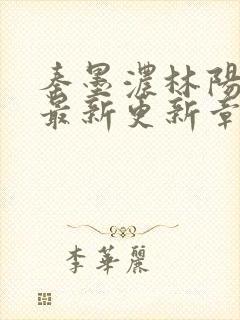 秦墨濃林陽
最新更新章
李華麗